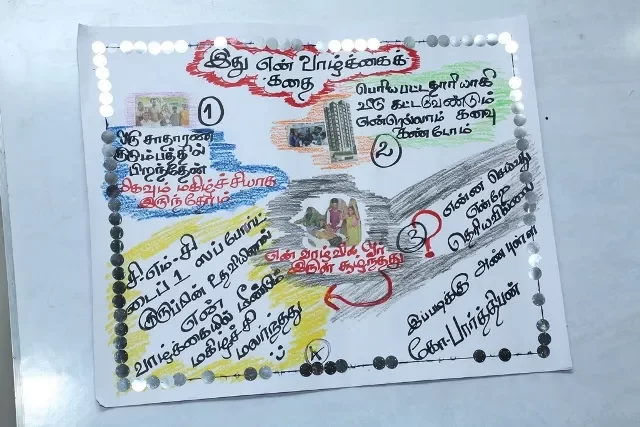 இது என் வாழ்க்கைக்
கதை
1
ஒரு சாதாரண
குடும்பத்தில்
பிறந்தேன்
மிகவும் மகிழ்ச்சியாக
இருந்தோம்
பெரிய பட்டதாரியாகி
வீடு கட்டவேண்டும்
என்றெல்லாம் கனவு
கண்டோம்
2
என் வாழ்வில் ஓர்
இருள் சூழ்ந்தது
3
?
என்ன செய்வது
என்றே
தெரியவில்லை
சி.எம்.சி
டைப் 1 சப்போர்ட்
குரூப்பின் உதவியினால்
என்
வாழ்க்கையில் மீண்டும்
மகிழ்ச்சி
மலர்ந்தது
4
இப்படிக்கு அன்புள்ள
கோ.பார்த்திபன்